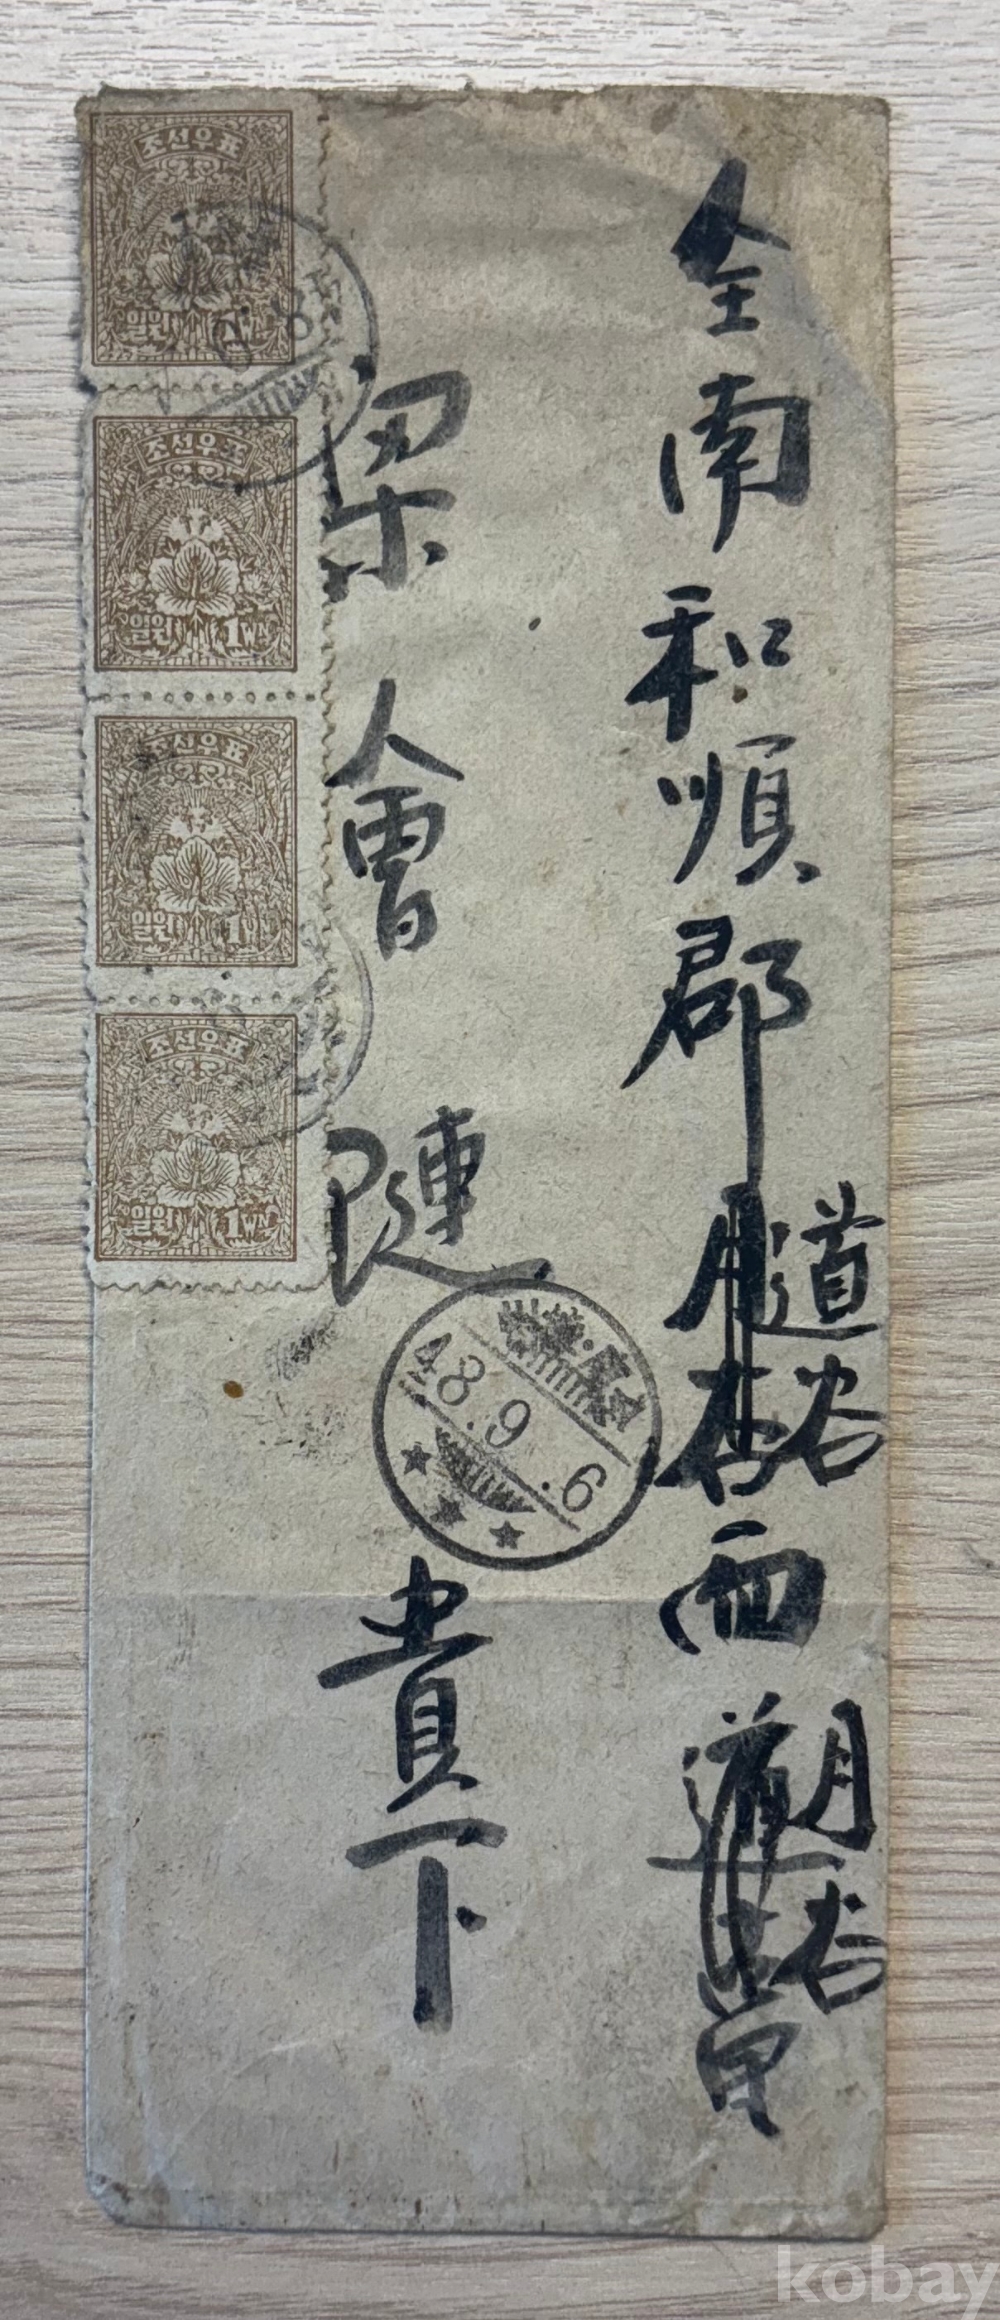 全南和順郡道谷面月谷里
梁會㻞 貴下
조선우표
일원 1WN
조선우표
일원 1WN
조선우표
일원 1WN
조선우표
일원 1WN
48.9.6
kobay